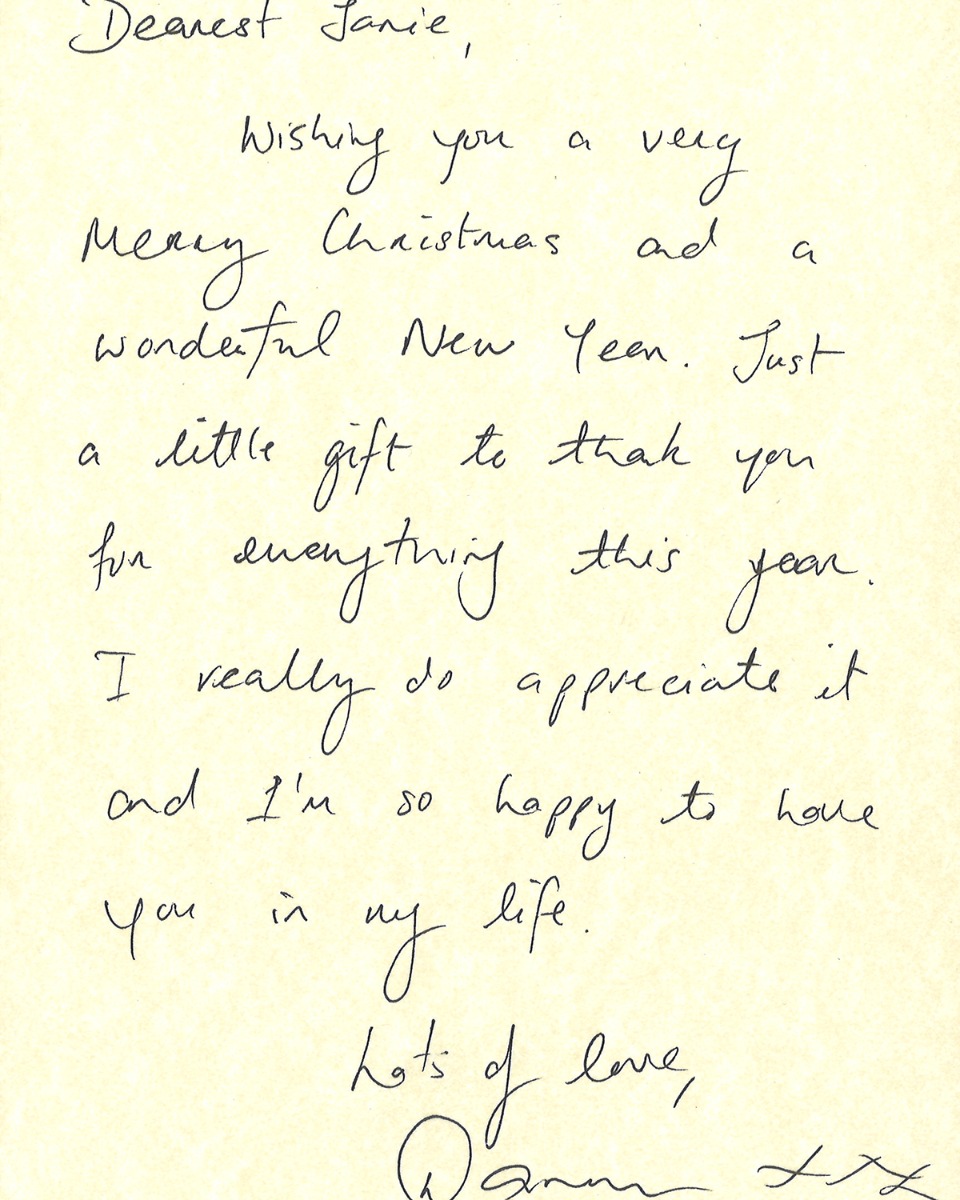 Dearest Janie,
Wishing you a very
Merry Christmas and a
wonderful New Year. Just
a little gift to thank you
for everything this year.
I really do appreciate it
and I'm so happy to have
you in my life.
Lots of love,
xxx